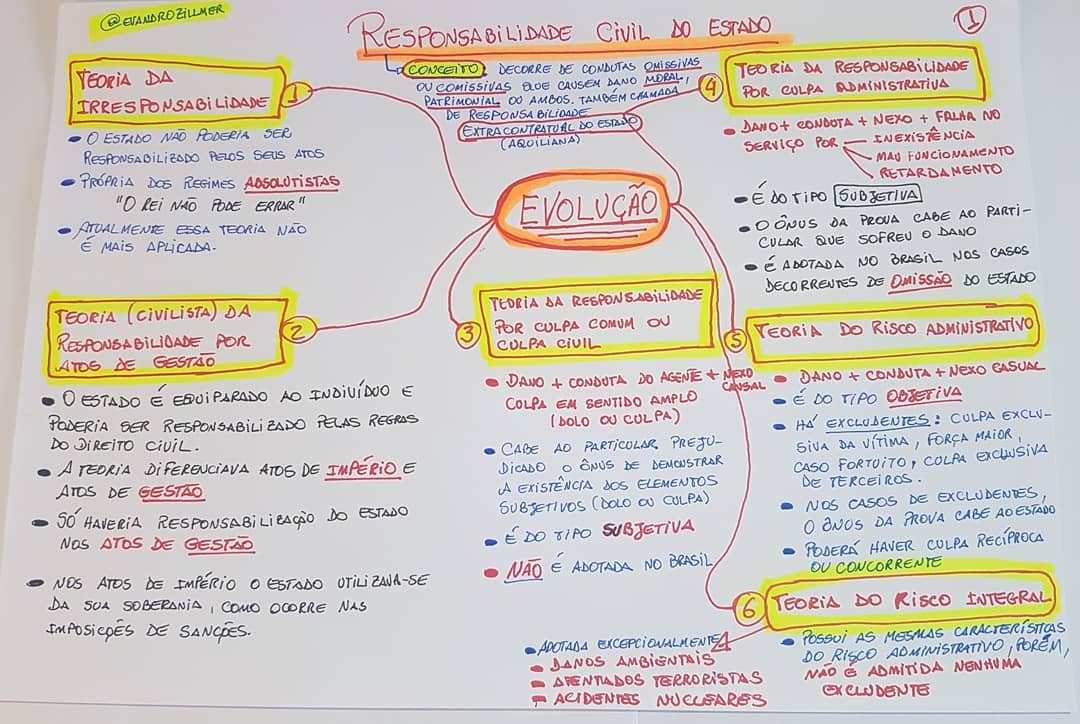 @EVANDROZILLMER
RESPONSABILIDADE CIVIL DO ESTADO
1
CONCEITO: DECORRE DE CONDUTAS OMISSIVAS
OU COMISSIVAS QUE CAUSEM DANO MORAL,
PATRIMONIAL OU AMBOS. TAMBÉM CHAMADA
DE RESPONSABILIDADE
EXTRACONTRATUAL DO ESTADO
(AQUILIANA)
EVOLUÇÃO
TEORIA DA
IRRESPONSABILIDADE
1
• O ESTADO NÃO PODERIA SER
RESPONSABILIZADO PELOS SEUS ATOS
• PRÓPRIA DOS REGIMES ABSOLUTISTAS
"O REI NÃO PODE ERRAR"
• ATUALMENTE ESSA TEORIA NÃO
É MAIS APLICADA.
TEORIA (CIVILISTA) DA
RESPONSABILIDADE POR
ATOS DE GESTÃO
2
• O ESTADO É EQUIPARADO AO INDIVÍDUO E
PODERIA SER RESPONSABILIZADO PELAS REGRAS
DO DIREITO CIVIL.
• A TEORIA DIFERENCIAVA ATOS DE IMPÉRIO E
ATOS DE GESTÃO
• SÓ HAVERIA RESPONSABILIZAÇÃO DO ESTADO
NOS ATOS DE GESTÃO
• NOS ATOS DE IMPÉRIO O ESTADO UTILIZAVA-SE
DA SUA SOBERANIA, COMO OCORRE NAS
IMPOSIÇÕES DE SANÇÕES.
3
TEORIA DA RESPONSABILIDADE
POR CULPA COMUM OU
CULPA CIVIL
• DANO + CONDUTA DO AGENTE + NEXO CAUSAL
CULPA EM SENTIDO AMPLO
(DOLO OU CULPA)
• CABE AO PARTICULAR PREJU-
DICADO O ÔNUS DE DEMONSTRAR
A EXISTÊNCIA DOS ELEMENTOS
SUBJETIVOS (DOLO OU CULPA)
• É DO TIPO SUBJETIVA
• NÃO É ADOTADA NO BRASIL
4
TEORIA DA RESPONSABILIDADE
POR CULPA ADMINISTRATIVA
• DANO + CONDUTA + NEXO + FALHA NO
SERVIÇO POR INEXISTÊNCIA
MAU FUNCIONAMENTO
RETARDAMENTO
• É DO TIPO SUBJETIVA
• O ÔNUS DA PROVA CABE AO PARTI-
CULAR QUE SOFREU O DANO
• É ADOTADA NO BRASIL NOS CASOS
DECORRENTES DE OMISSÃO DO ESTADO
5
TEORIA DO RISCO ADMINISTRATIVO
• DANO + CONDUTA + NEXO CASUAL
• É DO TIPO OBJETIVA
• HÁ EXCLUDENTES: CULPA EXCLU-
SIVA DA VÍTIMA, FORÇA MAIOR,
CASO FORTUITO, CULPA EXCLUSIVA
DE TERCEIROS.
• NOS CASOS DE EXCLUDENTES,
O ÔNUS DA PROVA CABE AO ESTADO
• PODERÁ HAVER CULPA RECÍPROCA
OU CONCORRENTE
6
TEORIA DO RISCO INTEGRAL
• POSSUI AS MESMAS CARACTERÍSTICAS
DO RISCO ADMINISTRATIVO, PORÉM,
NÃO É ADMITIDA NENHUMA
EXCLUDENTE
• ADOTADA EXCEPCIONALMENTE
• DANOS AMBIENTAIS
• ATENTADOS TERRORISTAS
• ACIDENTES NUCLEARES